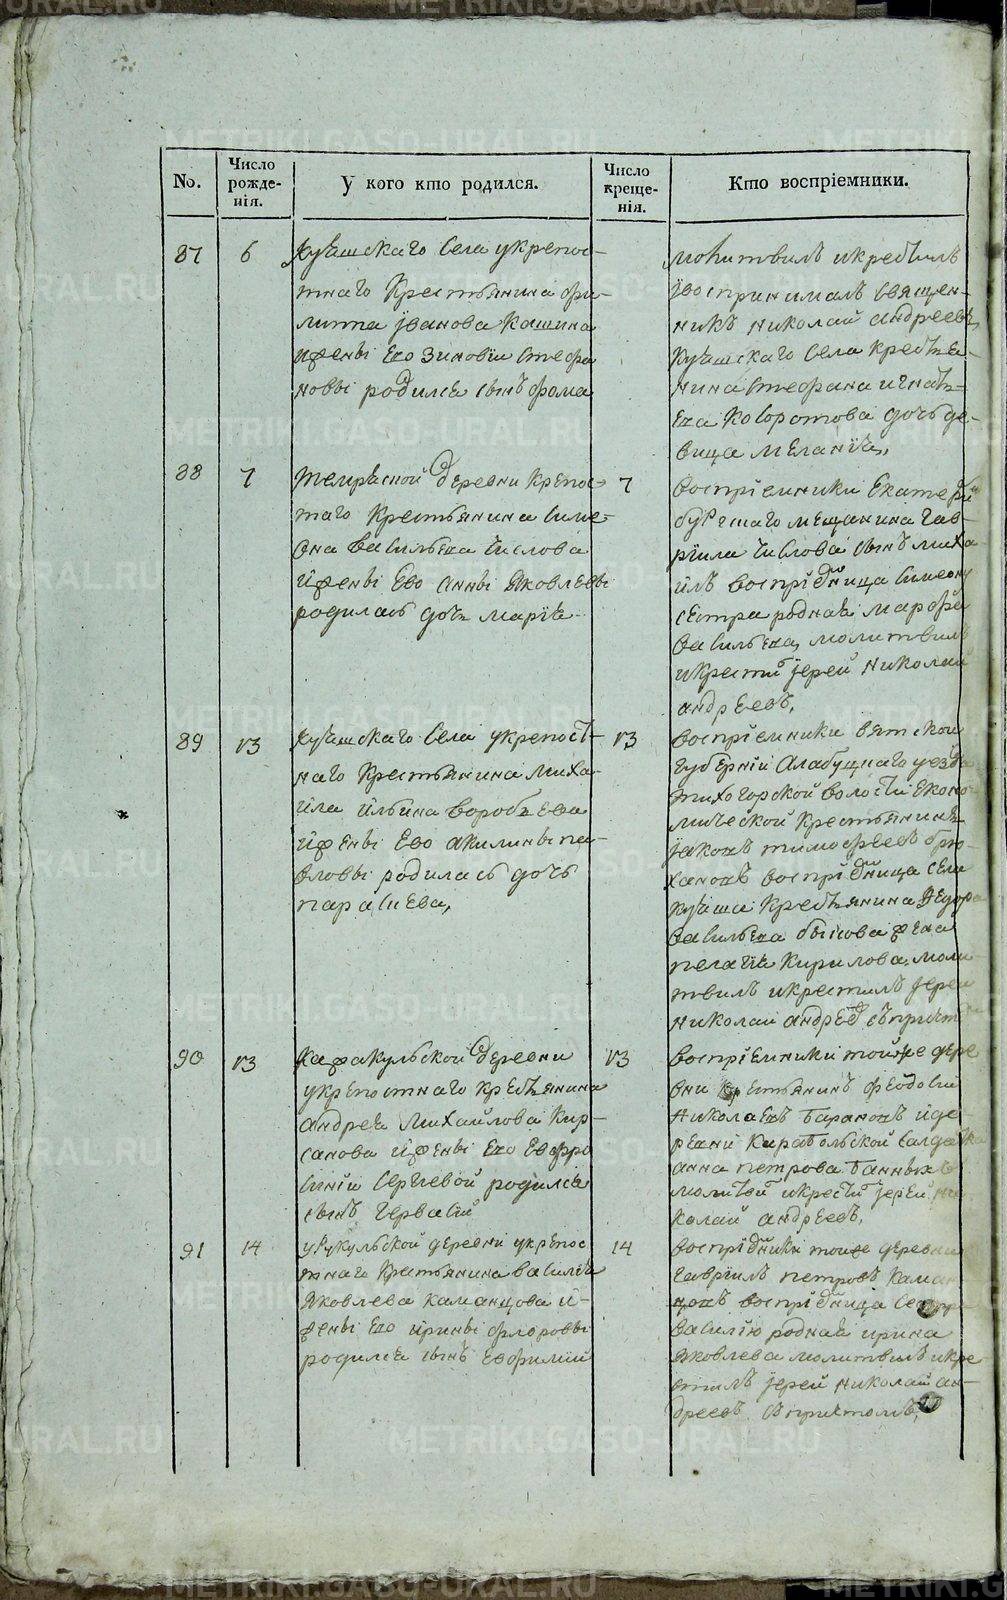 METRIKI.GASO-URAL.RU
No.
Число рожде-
нія.
У кого кто родился.
Число
креще-
нія.
Кто воспріемники.
87
6
Куяшскаго Села укрепос-
тнаго Крестьянина фи-
липпа Иванова Кашина
ижены Ево Зиновіи Стефа
новы родился сынъ фома
молитвилъ икрестилъ
ївоспринималъ Священ-
никъ Николай андреевъ,
Куяшскаго Села кресть
нина Стефана игнать-
ева Коворотова дочь де-
вица Меланія,
88
7
деревни Крепос-
таго Крестьянина Симе-
она васильева Числова
иженны Ево Анны Яковлевы
родилась дочь Марія
7
воспріемники Екатери
бургшаго мещанина гав-
ріила Числова сынъ миха
илъ воспріемница Симеону
сестра родная марфа
васильева, молитвилъ
икрестилъ їерей Николай
андреевъ,
89
13
Куяшскаго Села укрепост-
наго Крестьянина миха-
ила ильина воробьева
иженны Ево акилины па-
вловы родилась дочь
параскева,
13
воспріемники вятской
губерніи Алабуцкаго уезда
тихогорской волости Еконо-
мической Крестьянинъ
їаковъ тимофеевъ брю-
хановъ воспріемница села
Куяша Крестьянина Ѳедора
васильева быкова жена
пелагія Кирилова, моли-
твилъ икрестилъ їерей
Николай андреевъ съпричт
90
13
Кажакульской деревни
укрепостнаго крестьянина
андрея михайлова Кир-
санова иженны Ево Евфро
синіи Сергіевой родился
сынъ гервасій
13
воспріемники тойже дере
вни крестьянинъ феодосій
Николаевъ барановъ иде-
ревни Карабольской Салдатка
анна петрова банныхъ
молитвилъ икрестилъ їерей Ни
колай андреевъ,
91
14
деревни укрепос
тнаго Крестьянина василія
Яковлева каманцова и
жены Ево ирины флоровы
родился сынъ Евфимій
14
воспріемники тоже деревни
гавріилъ петровъ Каман
цовъ воспріемница Сестра
василію родная ирина
Яковлева молитвилъ икре
стилъ їерей Николай ан-
дреевъ спричтомъ,